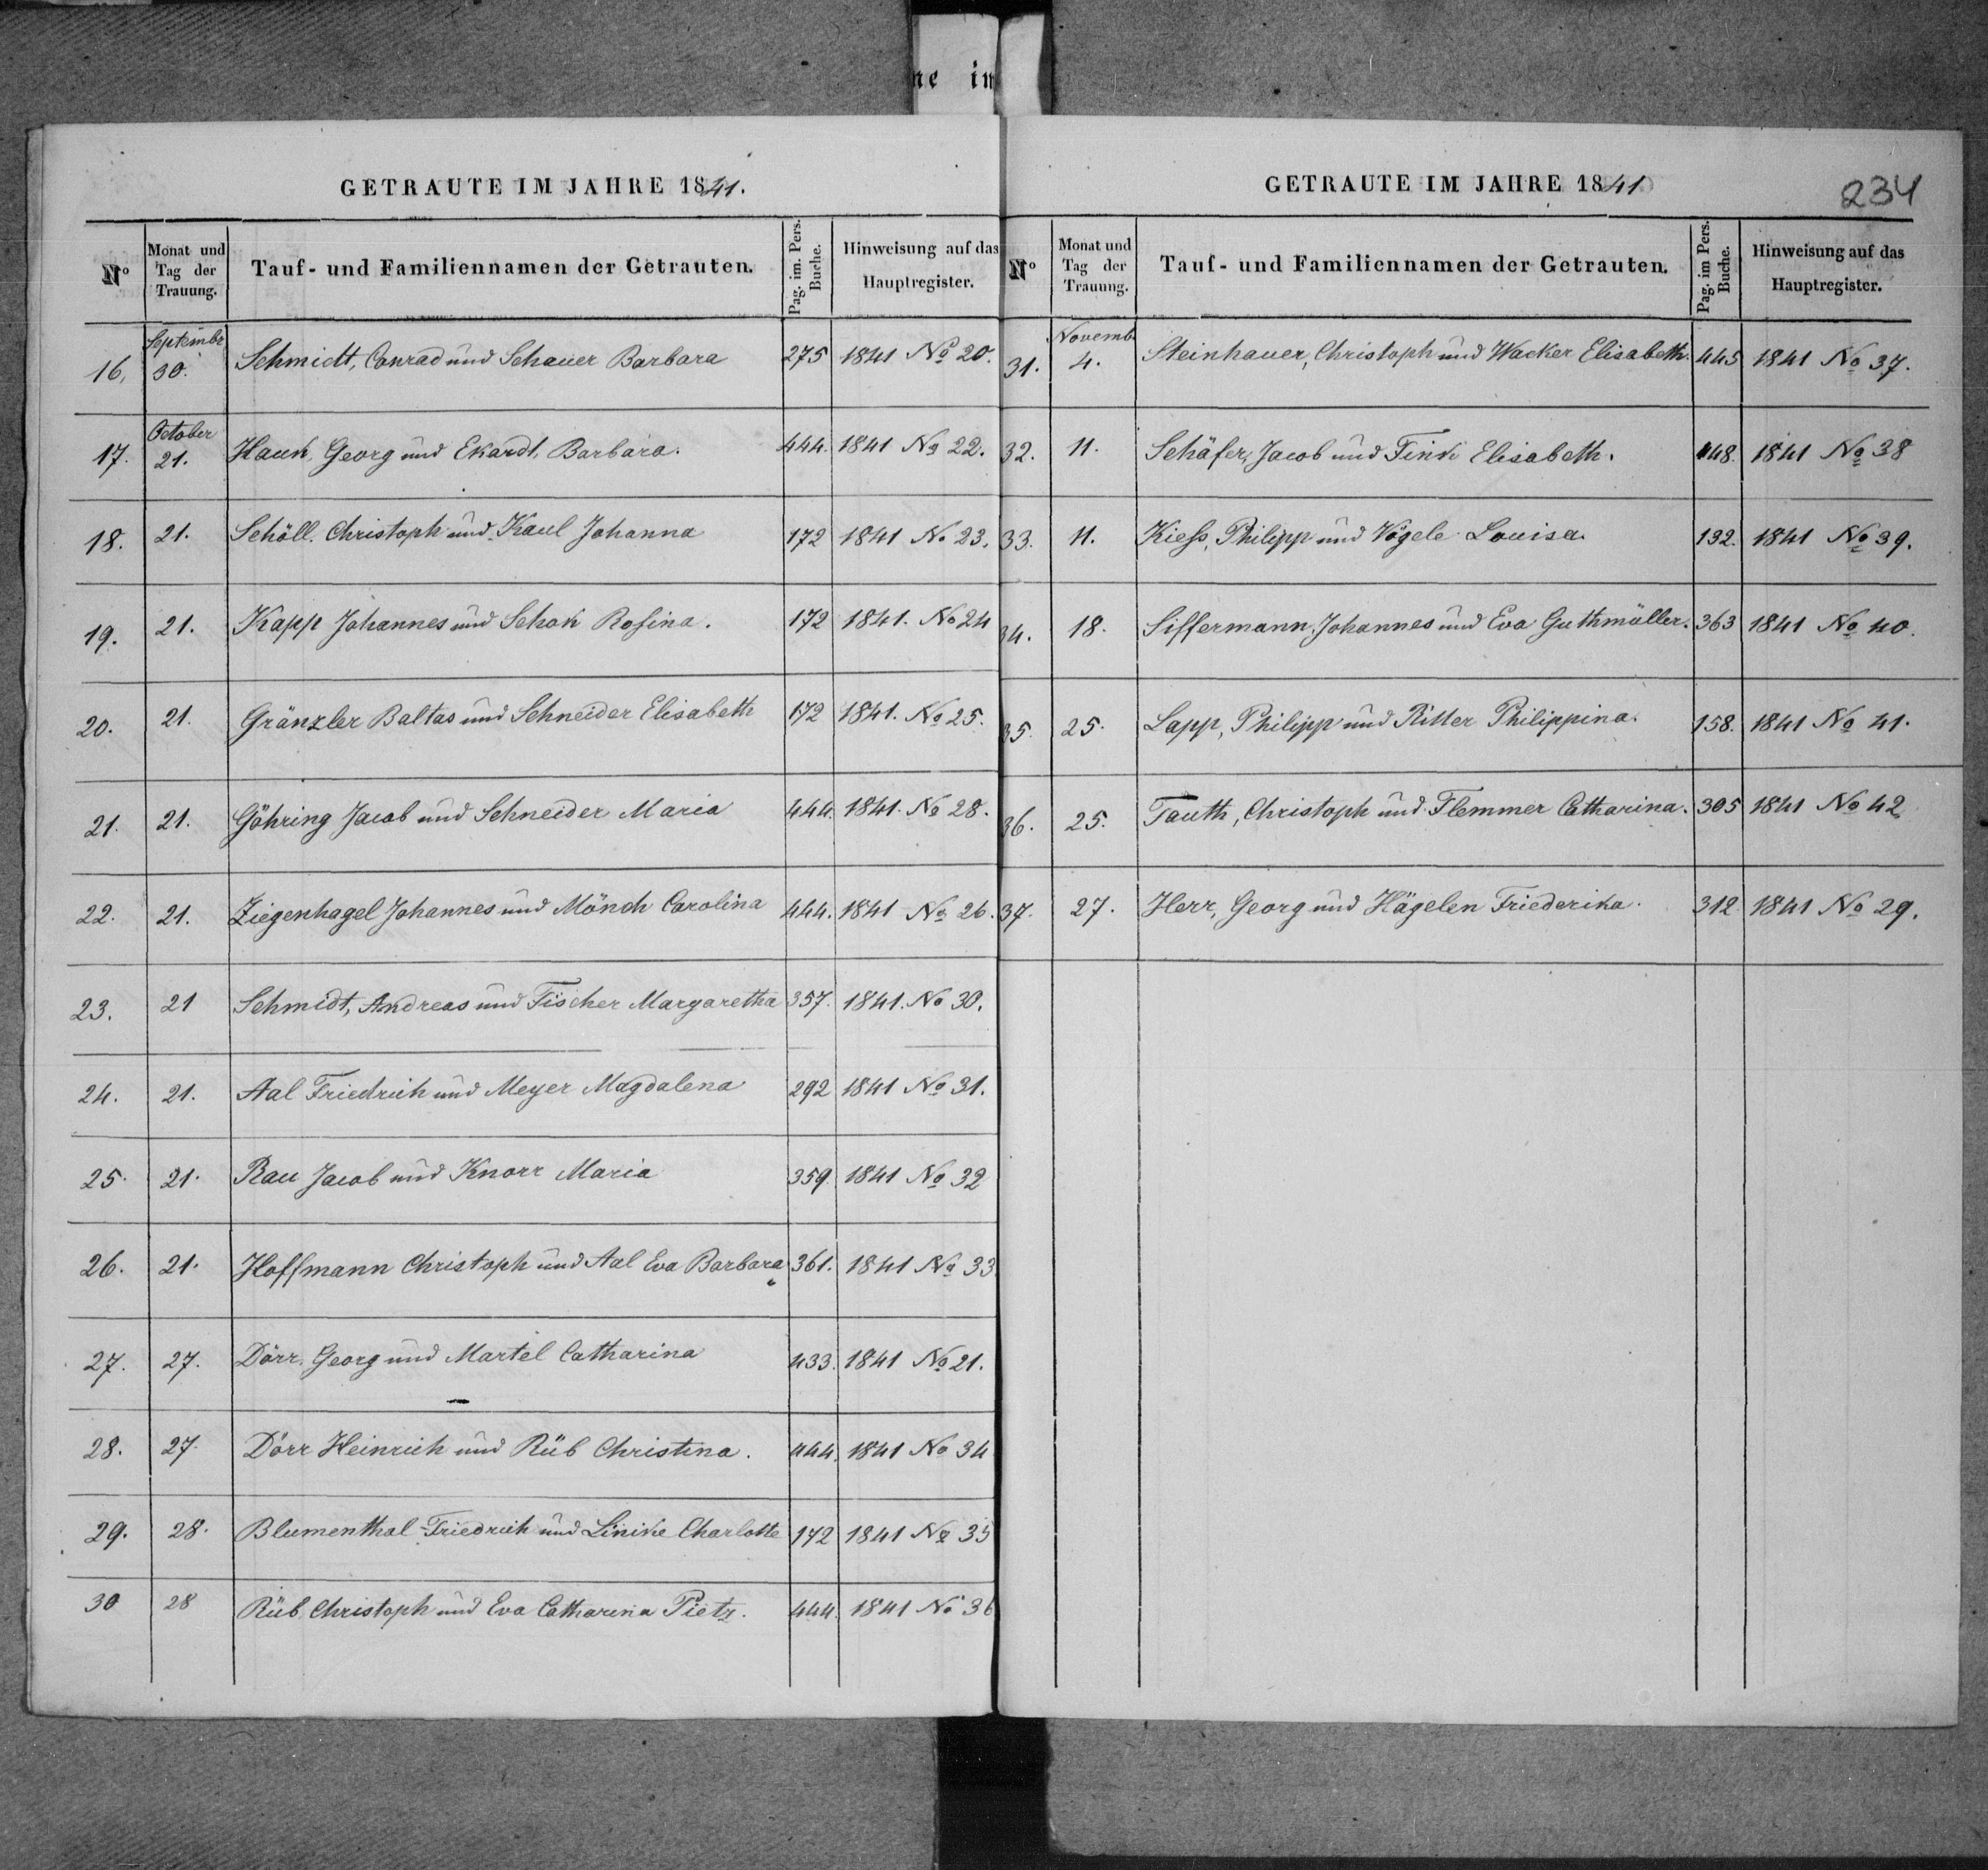 ne in
GETRAUTE IM JAHRE 1841.
Nº
Monat und Tag der Trauung.
Tauf- und Familiennamen der Getrauten.
Pag. im. Pers. Buche.
Hinweisung auf das Hauptregister.
Septembr
16. 30. Schmidt, Conrad und Schauer Barbara 275 1841 Nº 20.
October
17. 21. Hauk, Georg und Ekardt, Barbara. 444. 1841 Nº 22.
18. 21. Schöll. Christoph und Kaul Johanna 172 1841 Nº 23.
19. 21. Kapp Johannes und Schok Rosina. 172 1841. Nº 24
20. 21. Gränzler Baltas und Schneider Elisabeth 172 1841. Nº 25.
21. 21. Göhring Jacob und Schneider Maria 444. 1841. Nº 28.
22. 21. Ziegenhagel Johannes und Mönch Carolina 444. 1841 Nº 26.
23. 21 Schmidt, Andreas und Fischer Margaretha 357. 1841. Nº 30.
24. 21. Aal Friedrich und Meyer Magdalena 292 1841 Nº 31.
25. 21. Rau Jacob und Knorr Maria 359. 1841 Nº 32
26. 21. Hoffmann Christoph und Aal Eva Barbara 361. 1841 Nº 33
27. 27. Dörr. Georg und Martel Catharina 433. 1841 Nº 21.
28. 27. Dörr Heinrich und Rüb Christina. 444. 1841 Nº 34
29. 28. Blumenthal Friedrich und Linike Charlotte 172 1841 Nº 35
30 28 Rüb. Christoph und Eva Catharina Pietz. 444. 1841 Nº 36
GETRAUTE IM JAHRE 1841
234
Nº
Monat und Tag der Trauung.
Tauf- und Familiennamen der Getrauten.
Pag. im Pers. Buche.
Hinweisung auf das Hauptregister.
Novemb.
31. 4. Steinhauer, Christoph und Wacker Elisabeth. 445 1841 Nº 37.
32. 11. Schäfer, Jacob und Fink Elisabeth. 448. 1841 Nº 38
33. 11. Kieß, Philipp und Vögele Louisa. 132. 1841 Nº 39.
34. 18. Siffermann, Johannes und Eva Guthmüller. 363 1841 Nº 40.
35. 25. Lapp, Philipp und Ritter Philippina. 158. 1841 Nº 41.
36. 25. Fauth, Christoph und Flemmer Catharina. 305 1841 Nº 42
37. 27. Herr, Georg und Hägelen Friederika. 312 1841 Nº 29.